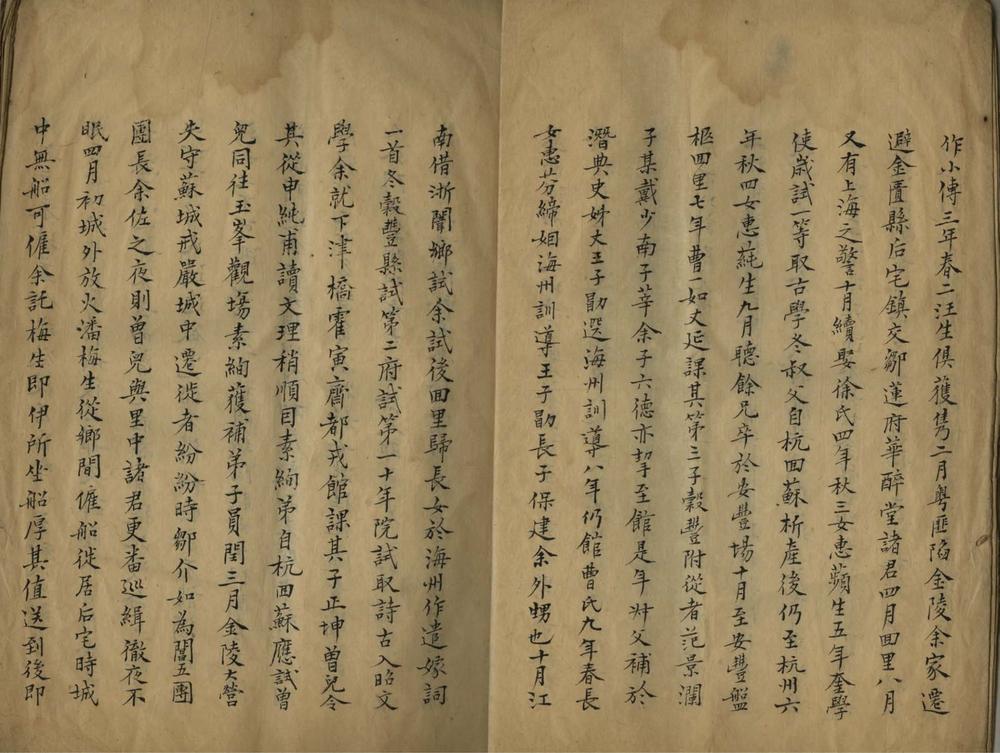 作小傳三年春二汪生俱獲雋二月粵匪陷金陵余家遷
避金匱縣后宅鎮交鄒蓮府華醉堂諸君四月回里八月
又有上海之警十月續娶徐氏四年秋三女惠蘋生五年奎學
使歲試一等取古學冬叔父自杭回蘇析產後仍至杭州六
年秋四女惠蓴生九月聽餘兄卒於安豐場十月至安豐盤
柩回里七年曹一如丈延課其第三子穀豐附從者范景瀾
子某戴少南子莘余子六德亦挈至館是年叔父補於
潛典史姊丈王子勖選海州訓導八年仍館曹氏九年春長
女惠芬締姻海州訓導王子勖長子保建余外甥也十月江
南借浙闈鄉試余試後回里歸長女於海州作遣嫁詞
一首冬穀豐縣試第二府試第一十年院試取詩古入昭文
學余就下津橋霍寅齋都戎館課其子正坤曾兒令
其從申純甫讀文理稍順目素絢弟自杭回蘇應試曾
兒同往玉峯觀場素絢獲補弟子員閏三月金陵大營
失守蘇城戒嚴城中遷徙者紛紛時鄒介如為閶五團
團長余佐之夜則曾兒與里中諸君更番巡緝徹夜不
眠四月初城外放火潘梅生從鄉間僱船徙居后宅時城
中無船可僱余託梅生即伊所坐船厚其值送到後即